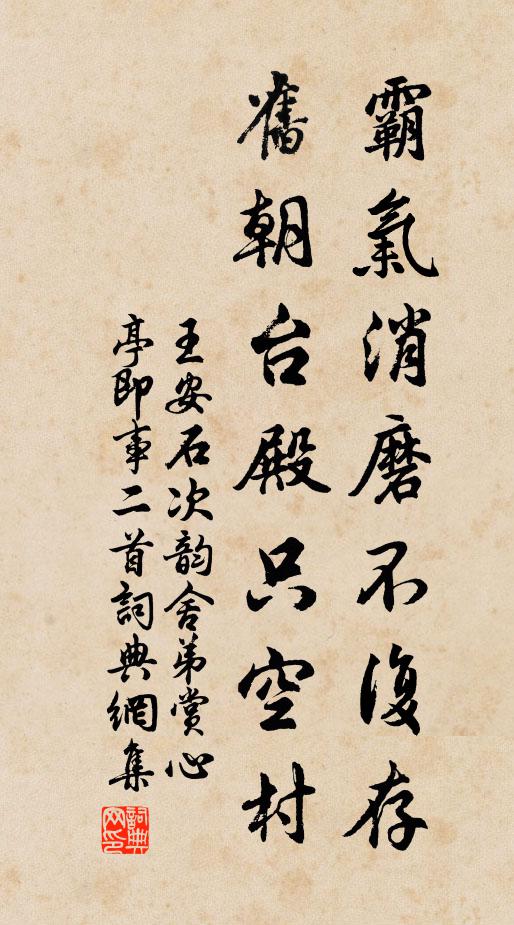 霸氣消磨不復存
舊朝台殿只空村
王安石次韵舍弟賞心
亭即事二首詞典網集
詞典网印